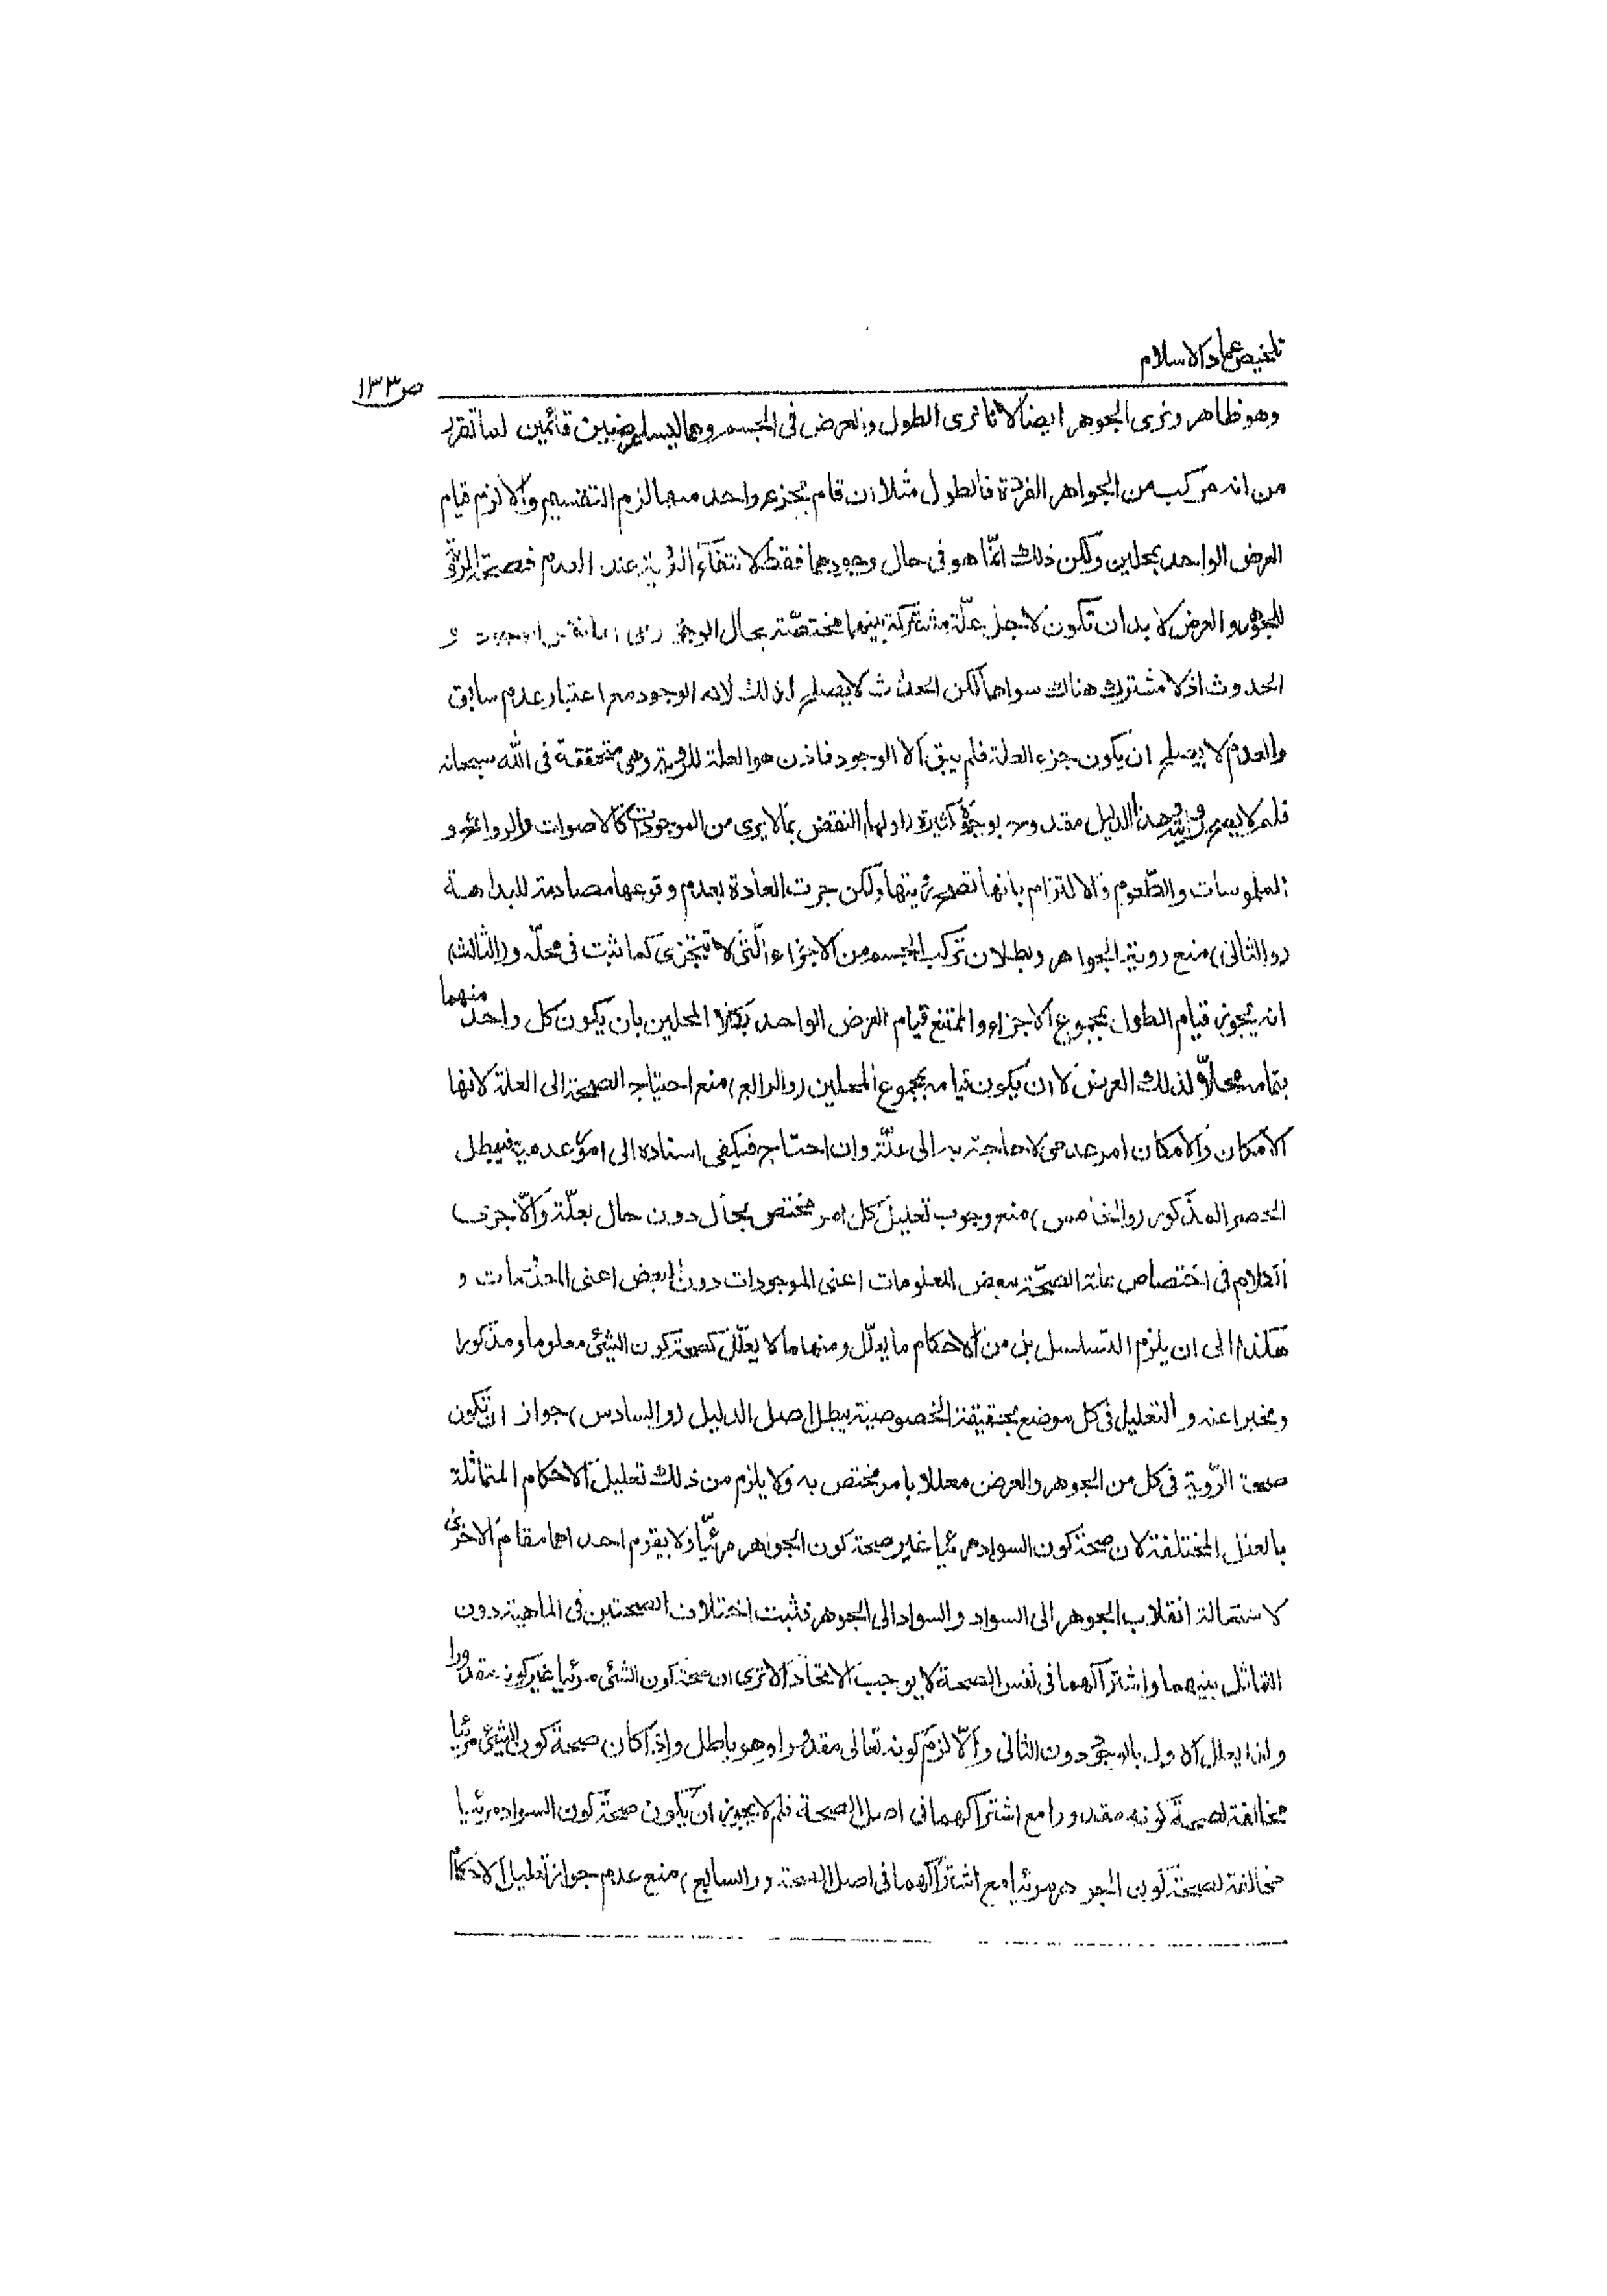 تلخيص عماد الاسلام
ص١٣٣
وهو ظاهر ونرى الجوهر ايضا لانا نرى الطول والعرض في الجسم وهما ليسا عرضيين قائمين لما تقرر
من انه مركب من الجواهر الفردة فالطول مثلا ان قام بجزء واحد منها لزم التقسيم والا لزم قيام
العرض الواحد بمحلين ولكن ذلك انما هو في حال وجودهما فقط لانتفاء الرؤية عند العدم فصحة الرؤية
للجوهر والعرض لا بد ان تكون لاجل علّة مشتركة بينهما مختصّة بحال الوجود
الحدوث اذ لا مشترك هناك سواهما لكن الحدوث لا يصلح لذلك لانه الوجود مع اعتبار عدم سابق
والعدم لا يصلح ان يكون جزء العلة فلم يبق الا الوجود فاذن هو العلة للرؤية وهي متحققة في الله سبحانه
فلم لا يصح رؤيته وهذا الدليل مقدوح بوجوه كثيرة (اولها) النقض بما لا يرى من الموجودات كالاصوات والروائح و
الملموسات والطّعوم والالتزام بانها تصح رؤيتها ولكن جرت العادة بعدم وقوعها مصادمة للبداهة
(والثاني) منع روية الجواهر وبطلان تركب الجسم من الاجزاء الّتي لا تتجزى كما ثبت في محلّه و(الثالث)
انه يجوز قيام الطول بمجموع الاجزاء والممتنع قيام العرض الواحد بكلا المحلين بان يكون كل واحد منهما
بتمامه محلاّ لذلك العرض لا ان يكون قيامه بمجموع المحلين (والرابع) منع احتياج الصحة الى العلة لانها
الامكان والامكان امر عدمي لا حاجة به الى علّة وان احتاج فيكفي اسناده الى امور عدمية فيبطل
الحصر المذكور (والخامس) منع وجوب تعليل كل امر مختص بحال دون حال بعلّة والّا جرى
الكلام في اختصاص علة الصحّة ببعض المعلومات اعنى الموجودات دون البعض اعنى المعدومات و
هكذا الى ان يلزم التسلسل بل من الاحكام ما يعلّل ومنها ما لا يعلّل كصحة كون الشيئ معلوما ومذكورا
ومخبرا عنه و التعليل في كل موضع بحقيقة الخصوصية يبطل اصل الدليل (والسادس) جواز ان تكون
صحة الرّوية في كل من الجوهر والعرض معللا بامر مختص به ولا يلزم من ذلك تعليل الاحكام المتماثلة
بالعلل المختلفة لان صحة كون السواد مرئيا غير صحة كون الجواهر مرئيّا ولا يقوم احداهما مقام الاخرى
لاستحالة انقلاب الجوهر الى السواد والسواد الى الجوهر فثبت اختلاف الصحتين في الماهية دون
التماثل بينهما واشتراكهما في نفس الصحة لا يوجب الاتحاد الا ترى ان صحة كون الشئي مرئيا غير كونه مقدورا
ولذا يعلل الاول بالوجود دون الثاني والّا لزم كونه تعالى مقدورا وهو باطل واذا كان صحة كون الشيئ مرئيا
مخالفة لصحة كونه مقدورا مع اشتراكهما في اصل الصحة فلم لا يجوز ان يكون صحة كون السواد مرئيا
مخالفة لصحة كون الجوهر مرئيا مع اشتراكهما في اصل الصحة (والسابع) منع عدم جواز تعليل الاحكام